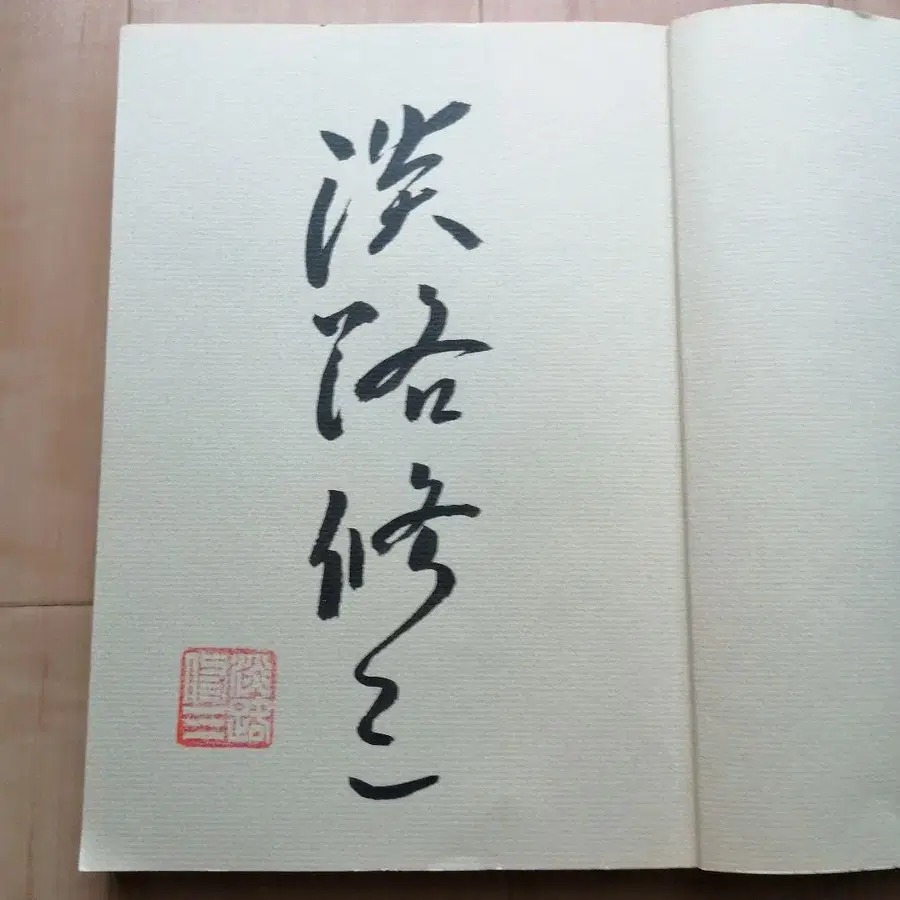 淡路修三
淡路
修三